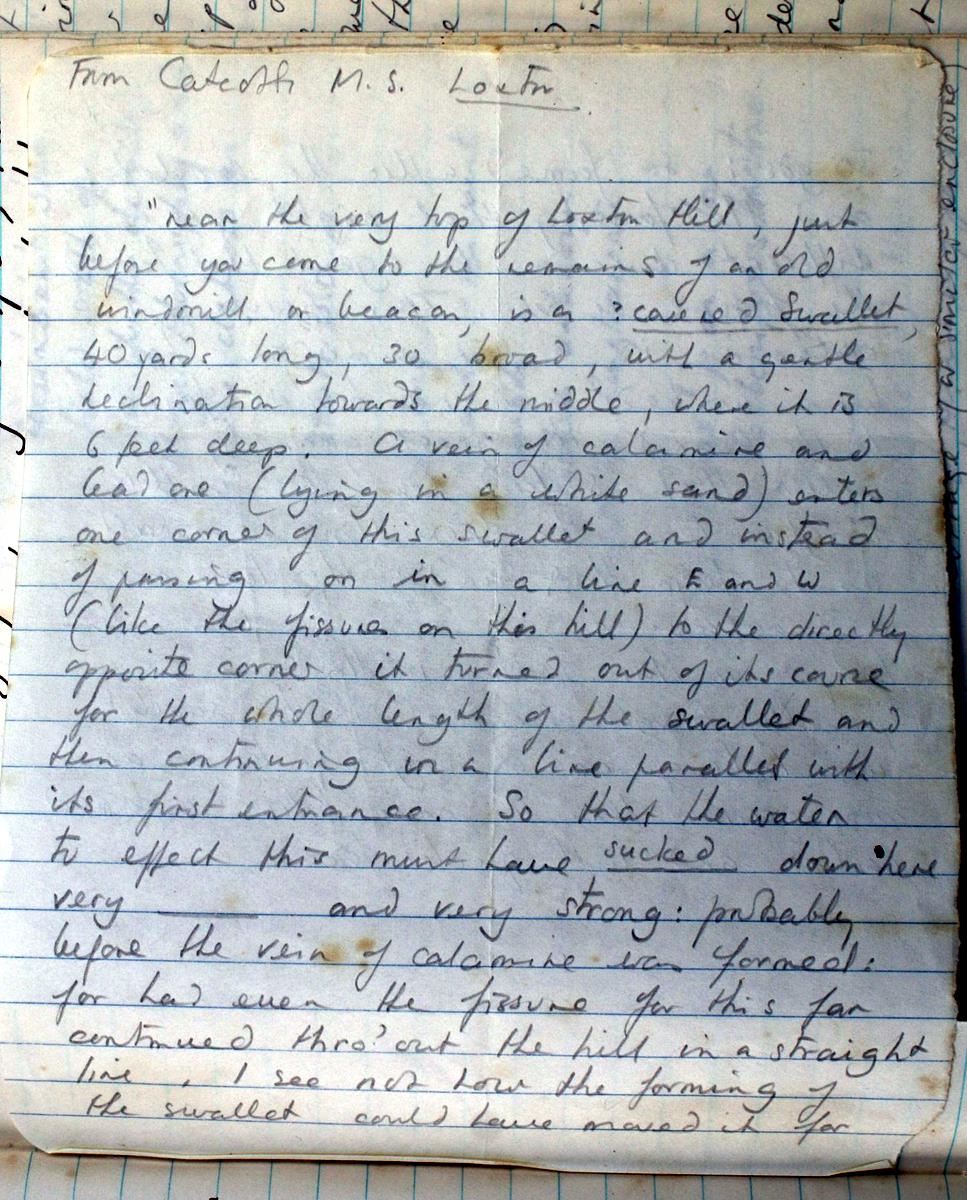 From Catcotts M.S. Loxton
"near the very top of Loxton Hill, just
before you come to the remains of an old
windmill or beacon, is a ? Swallet,
40 yards long, 30 broad, with a gentle
declination towards the middle, where it is
6 feet deep. A vein of calamine and
lead ore (lying in a white sand) enters
one corner of this swallet and instead
of passing on in a line E and W
(like the fissures on this hill) to the directly
opposite corner it turned out of its course
for the whole length of the swallet and
then continuing in a line parallel with
its first entrance. So that the water
to effect this must have sucked down here
very ______ and very strong: probably
before the vein of calamine was formed:
for had even the fissure for this far
continued thro' out the hill in a straight
line, I see not how the forming of
the swallet could have moved it for